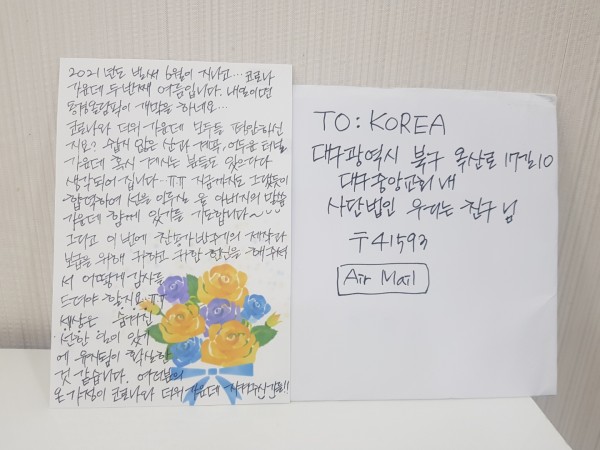 2021년도 벌써 6월이 지나고... 코로나
가운데 두번째 여름입니다. 내일이면
동경올림픽이 개막을 하네요...
코로나와 더위 가운데 모두들 평안하신
지요? 쉽지 않은 삶과 계획, 어두운 터널
가운데 혹시 계시는 분들도 있으다다
생각되어 집니다...ㅠㅠ 지금까지도 그랬듯이
합력하여 선을 이루실 줄 아버지의 말씀
가운데 함께 있기를 기도합니다~
그리고 이번에 찬양가반주기의 제작과
보급을 위해 귀하고 귀한 헌신을 해주셔
서 어떻게 감사를
드려야 할지요.ㅠㅠ
세상은 숨겨진
선한 일이 있기
에 유지됨이 확실한
것 같습니다. 여러분의
온 가정이 코로나와 더위 가운데 지켜주심 가득!!
TO: KOREA
대구광역시 북구 옥산로 17길 10
대구중앙교회 내
사단법인 우리는 친구 님
〒41593
Air Mail